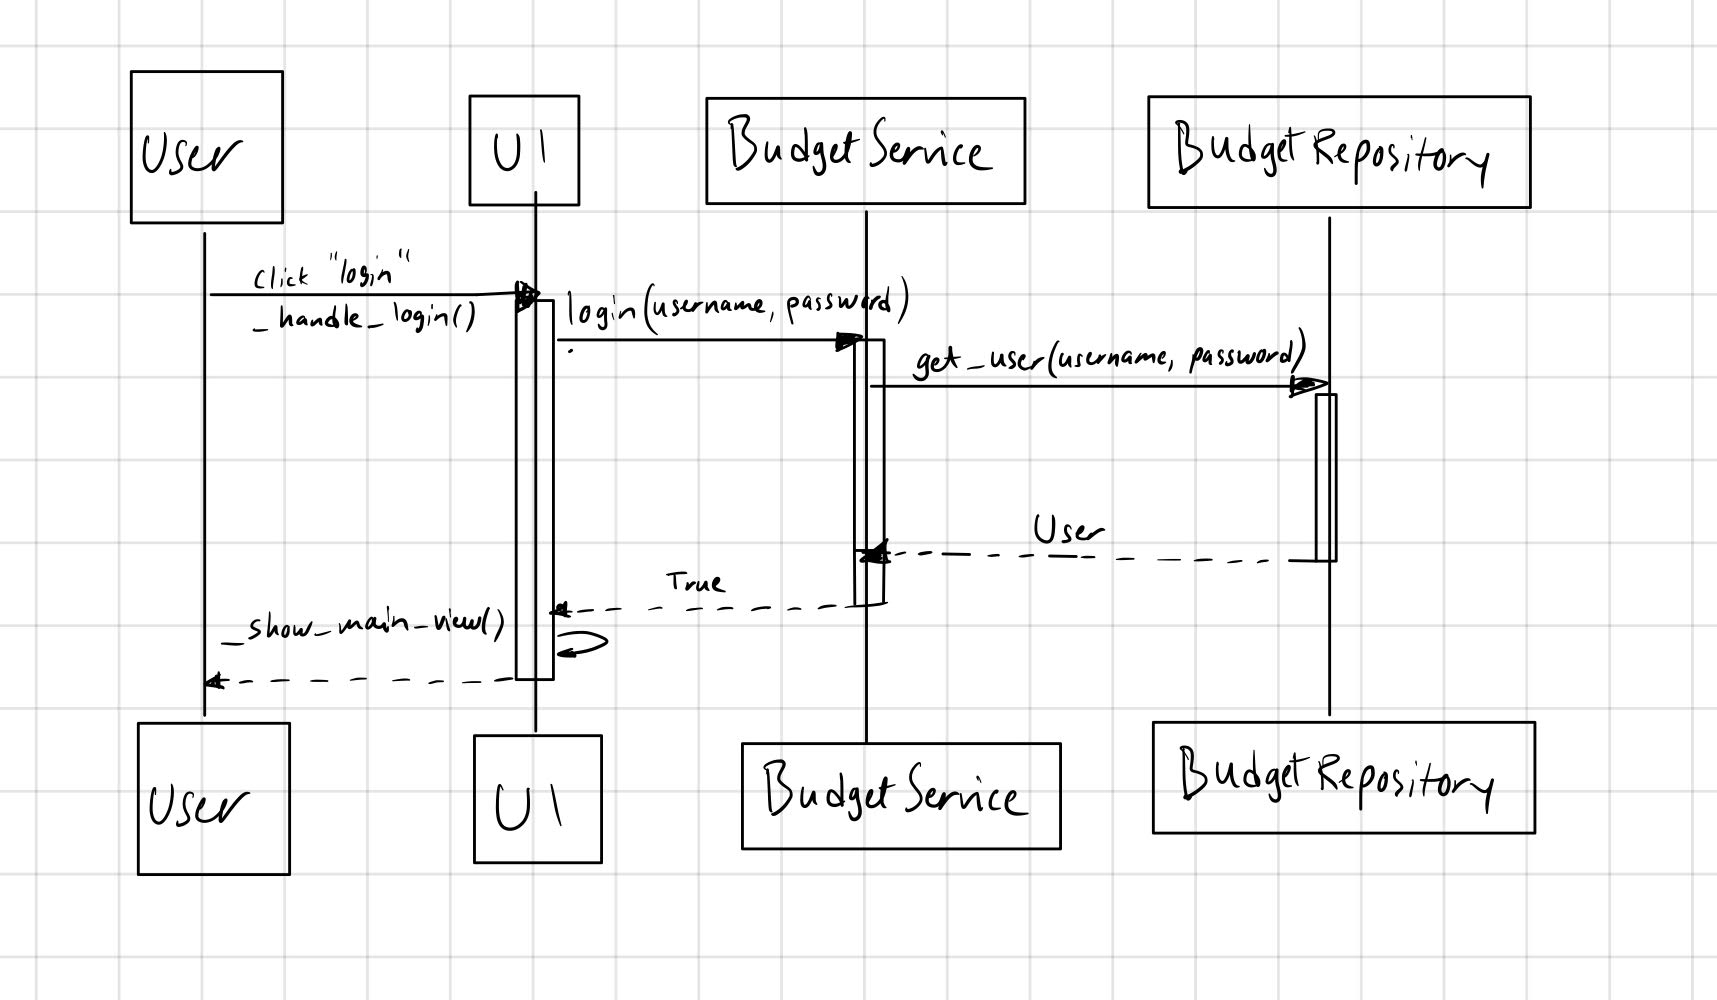 User
UI
BudgetService
BudgetRepository
click "login"
_handle_login()
login(username, password)
get_user(username, password)
User
True
_show_main_view()
User
UI
BudgetService
BudgetRepository